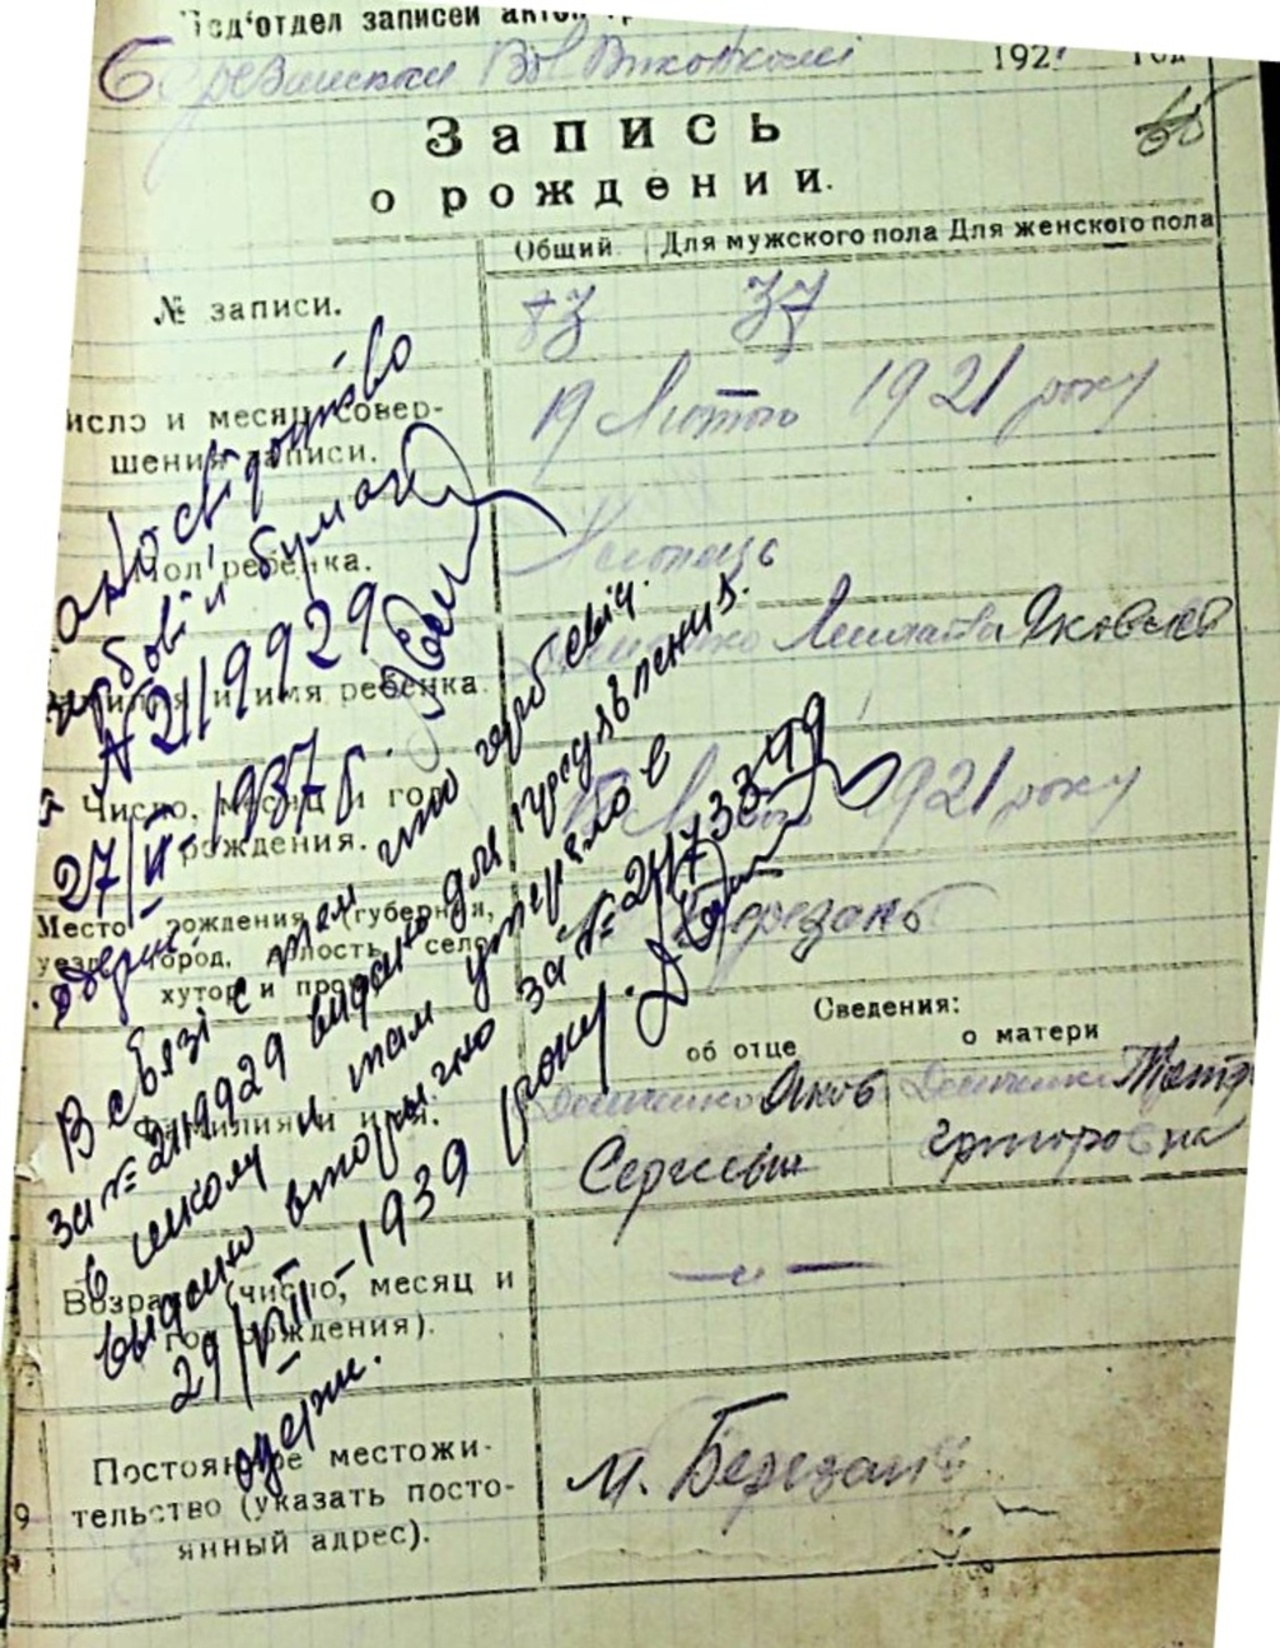 Под'отдел записей актов
Березанський Вол Виконкомі 192 год
Запись
о рождении.
Общий. Для мужского пола Для женского пола
№ записи. 73 37
Число и месяц совер-
шения записи.
19 Лютого 1921 року
Пол ребенка. Хлопець
Фамилия и имя ребенка. Яковлев
Число, месяц и год
рождения.
1921 року
Место рождения (губерния,
уезд, город, волость, село,
хутор и пр.
Березань
Сведения:
об отце о матери
Фамилия и имя.
Демченко Яков Демченко
Сергиевич Григоровна
Возраст (число, месяц и
год рождения).
Постоянное местожи-
тельство (указать посто-
янный адрес).
9
м. Березань
свідоцтво
гербовій бумаги
№ 2119929
27/II-1937 р.
В связі с тем что герб свід.
за № 2119929 видано для предъявления
в школу и там утеряло
видано вторично за № 2473349
29/VIII-1939 року.